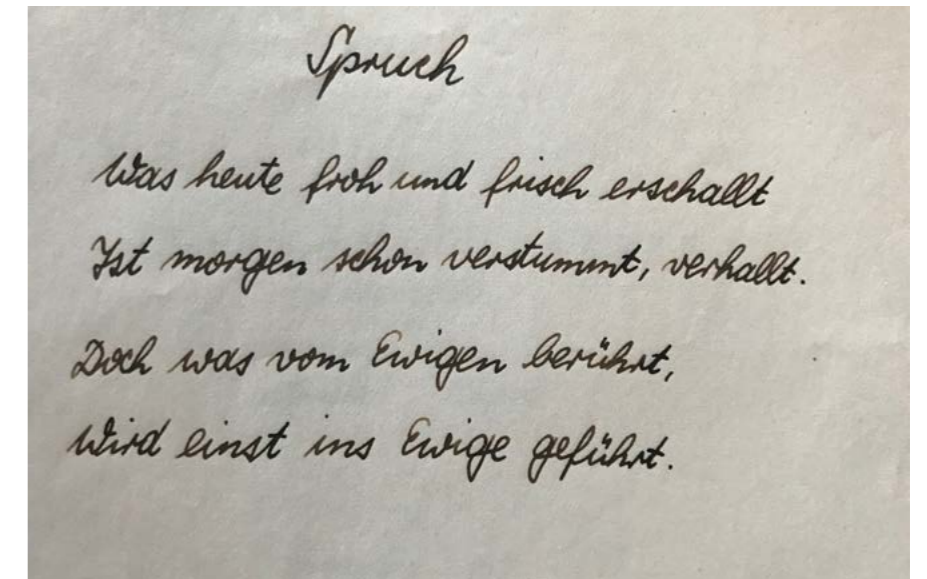 Spruch
Was heute froh und frisch erschallt
Ist morgen schon verstummt, verhallt.
Doch was vom Ewigen berührt,
Wird einst ins Ewige geführt.